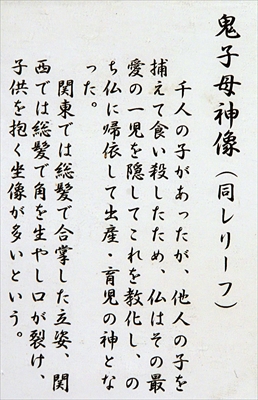 鬼子母神像（同レリーフ）
千人の子があったが、他人の子を
捕えて食い殺したため、仏はその最
愛の一児を隠してこれを教化し、の
ち仏に帰依して出産・育児の神とな
った。
関東では総髪で合掌した立姿、関
西では総髪で角を生やし口が裂け、
子供を抱く坐像が多いという。